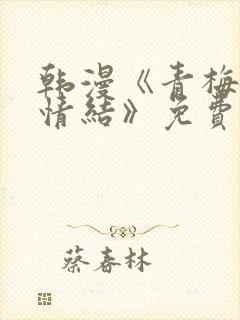 韩漫《青梅
情結》免費
蔡春林